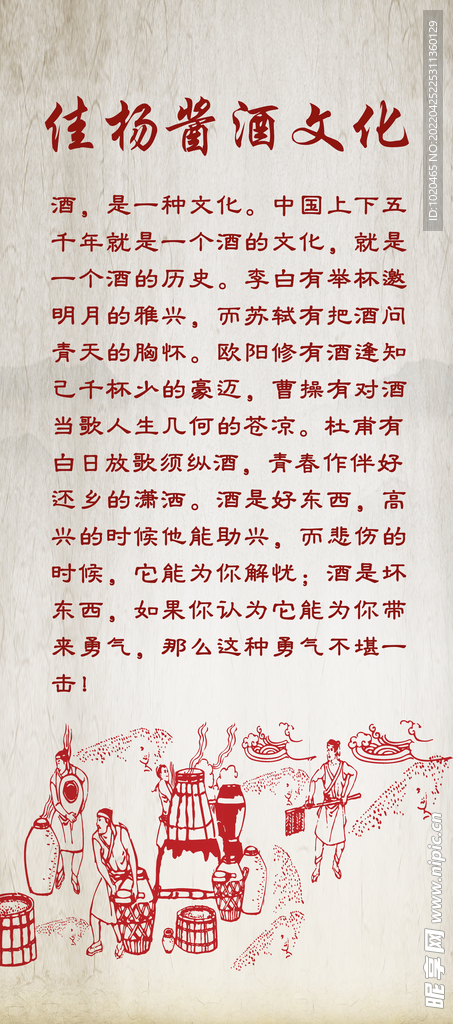 佳杨酱酒文化
酒，是一种文化。中国上下五
千年就是一个酒的文化，就是
一个酒的历史。李白有举杯邀
明月的雅兴，而苏轼有把酒问
青天的胸怀。欧阳修有酒逢知
己千杯少的豪迈，曹操有对酒
当歌人生几何的苍凉。杜甫有
白日放歌须纵酒，青春作伴好
还乡的潇洒。酒是好东西，高
兴的时候他能助兴，而悲伤的
时候，它能为你解忧；酒是坏
东西，如果你认为它能为你带
来勇气，那么这种勇气不堪一
击!
ID:1020465 NO:20220425225311360129
昵享网 www.nipic.cn